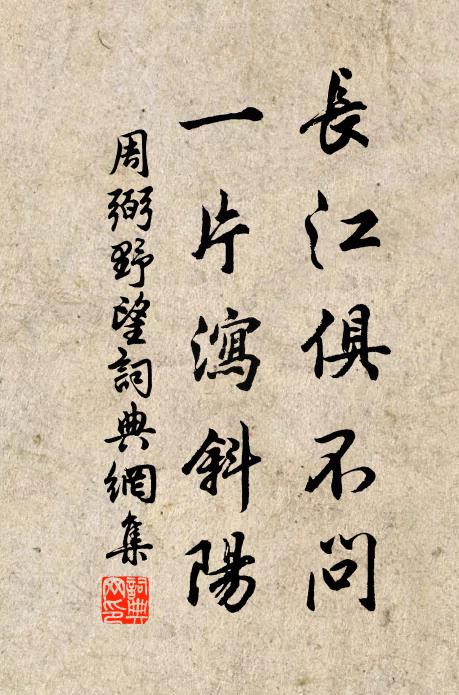 長江俱不問
一片瀉斜陽
周弼野望詞典網集
詞典網印